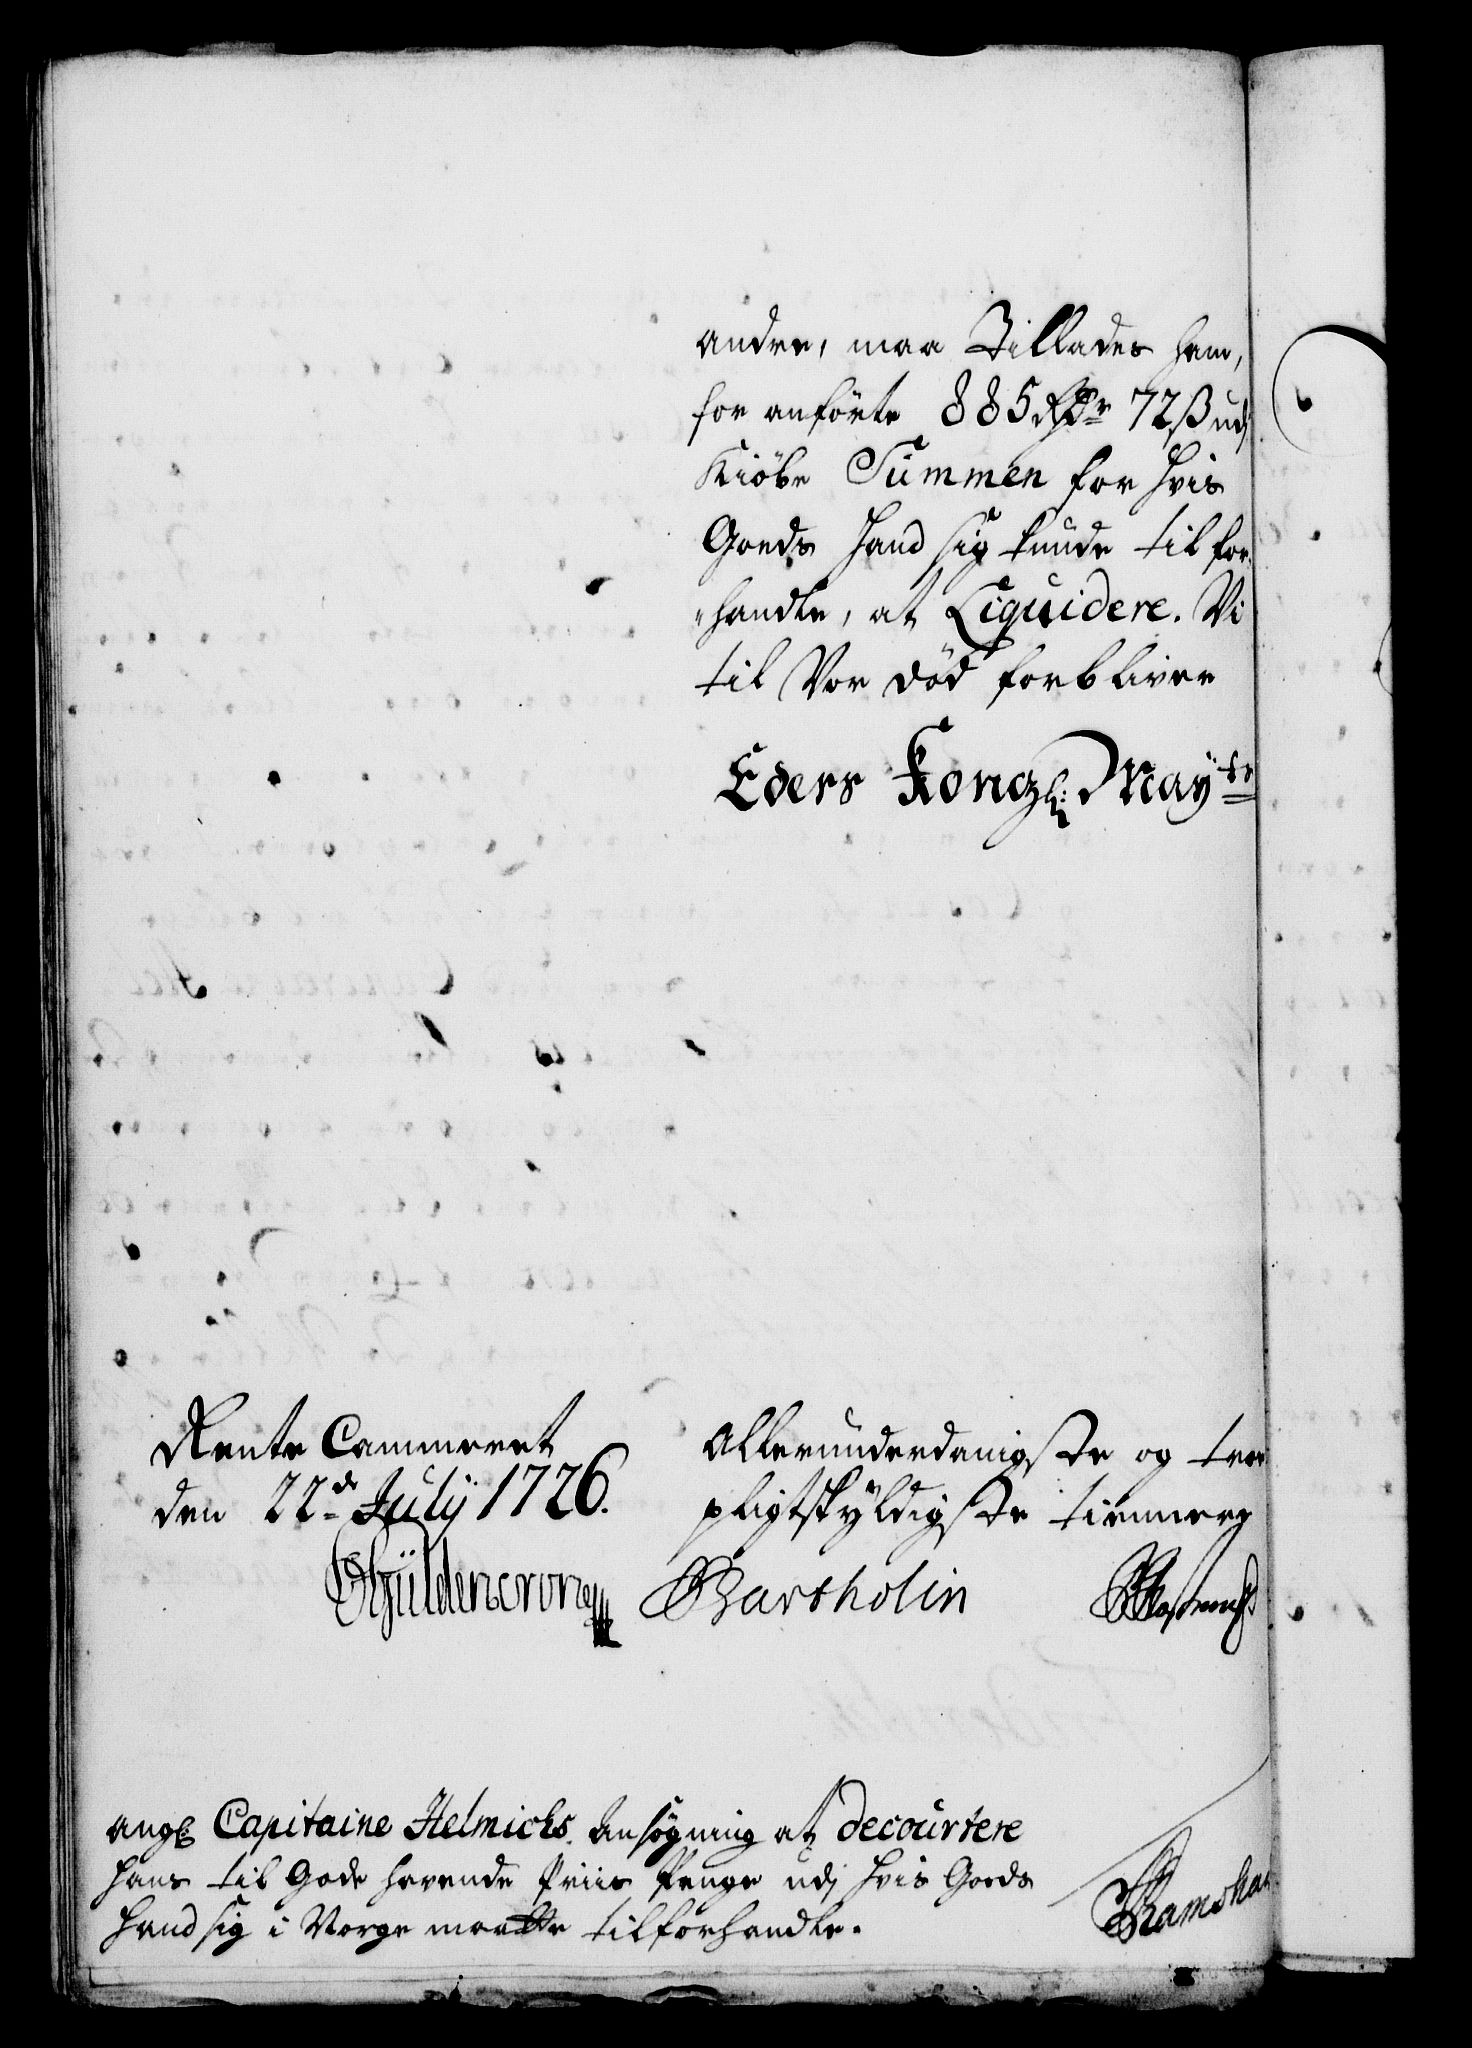 andre, maa Tillades ham,
for anförte 885 Rdr 72 ß udj
Kiöbe Summen for hvis
Goeds hand sig kunde til for-
handle, at Liquidere. Vi
til Vor död forbliver
Eders Kongl: Mayts
Rente Cammeret
den 22de Julij 1726.
Allerunderdanigste og troe
pligtskyldigste tiennere
Güldencrone
Bartholin
angl Capitaine Helmichs Ansögning at decourtere
hans til Gode havende Priis Penge udj hvis Goeds
hand sig i Norge maatte tilforhandle.
Ramshar